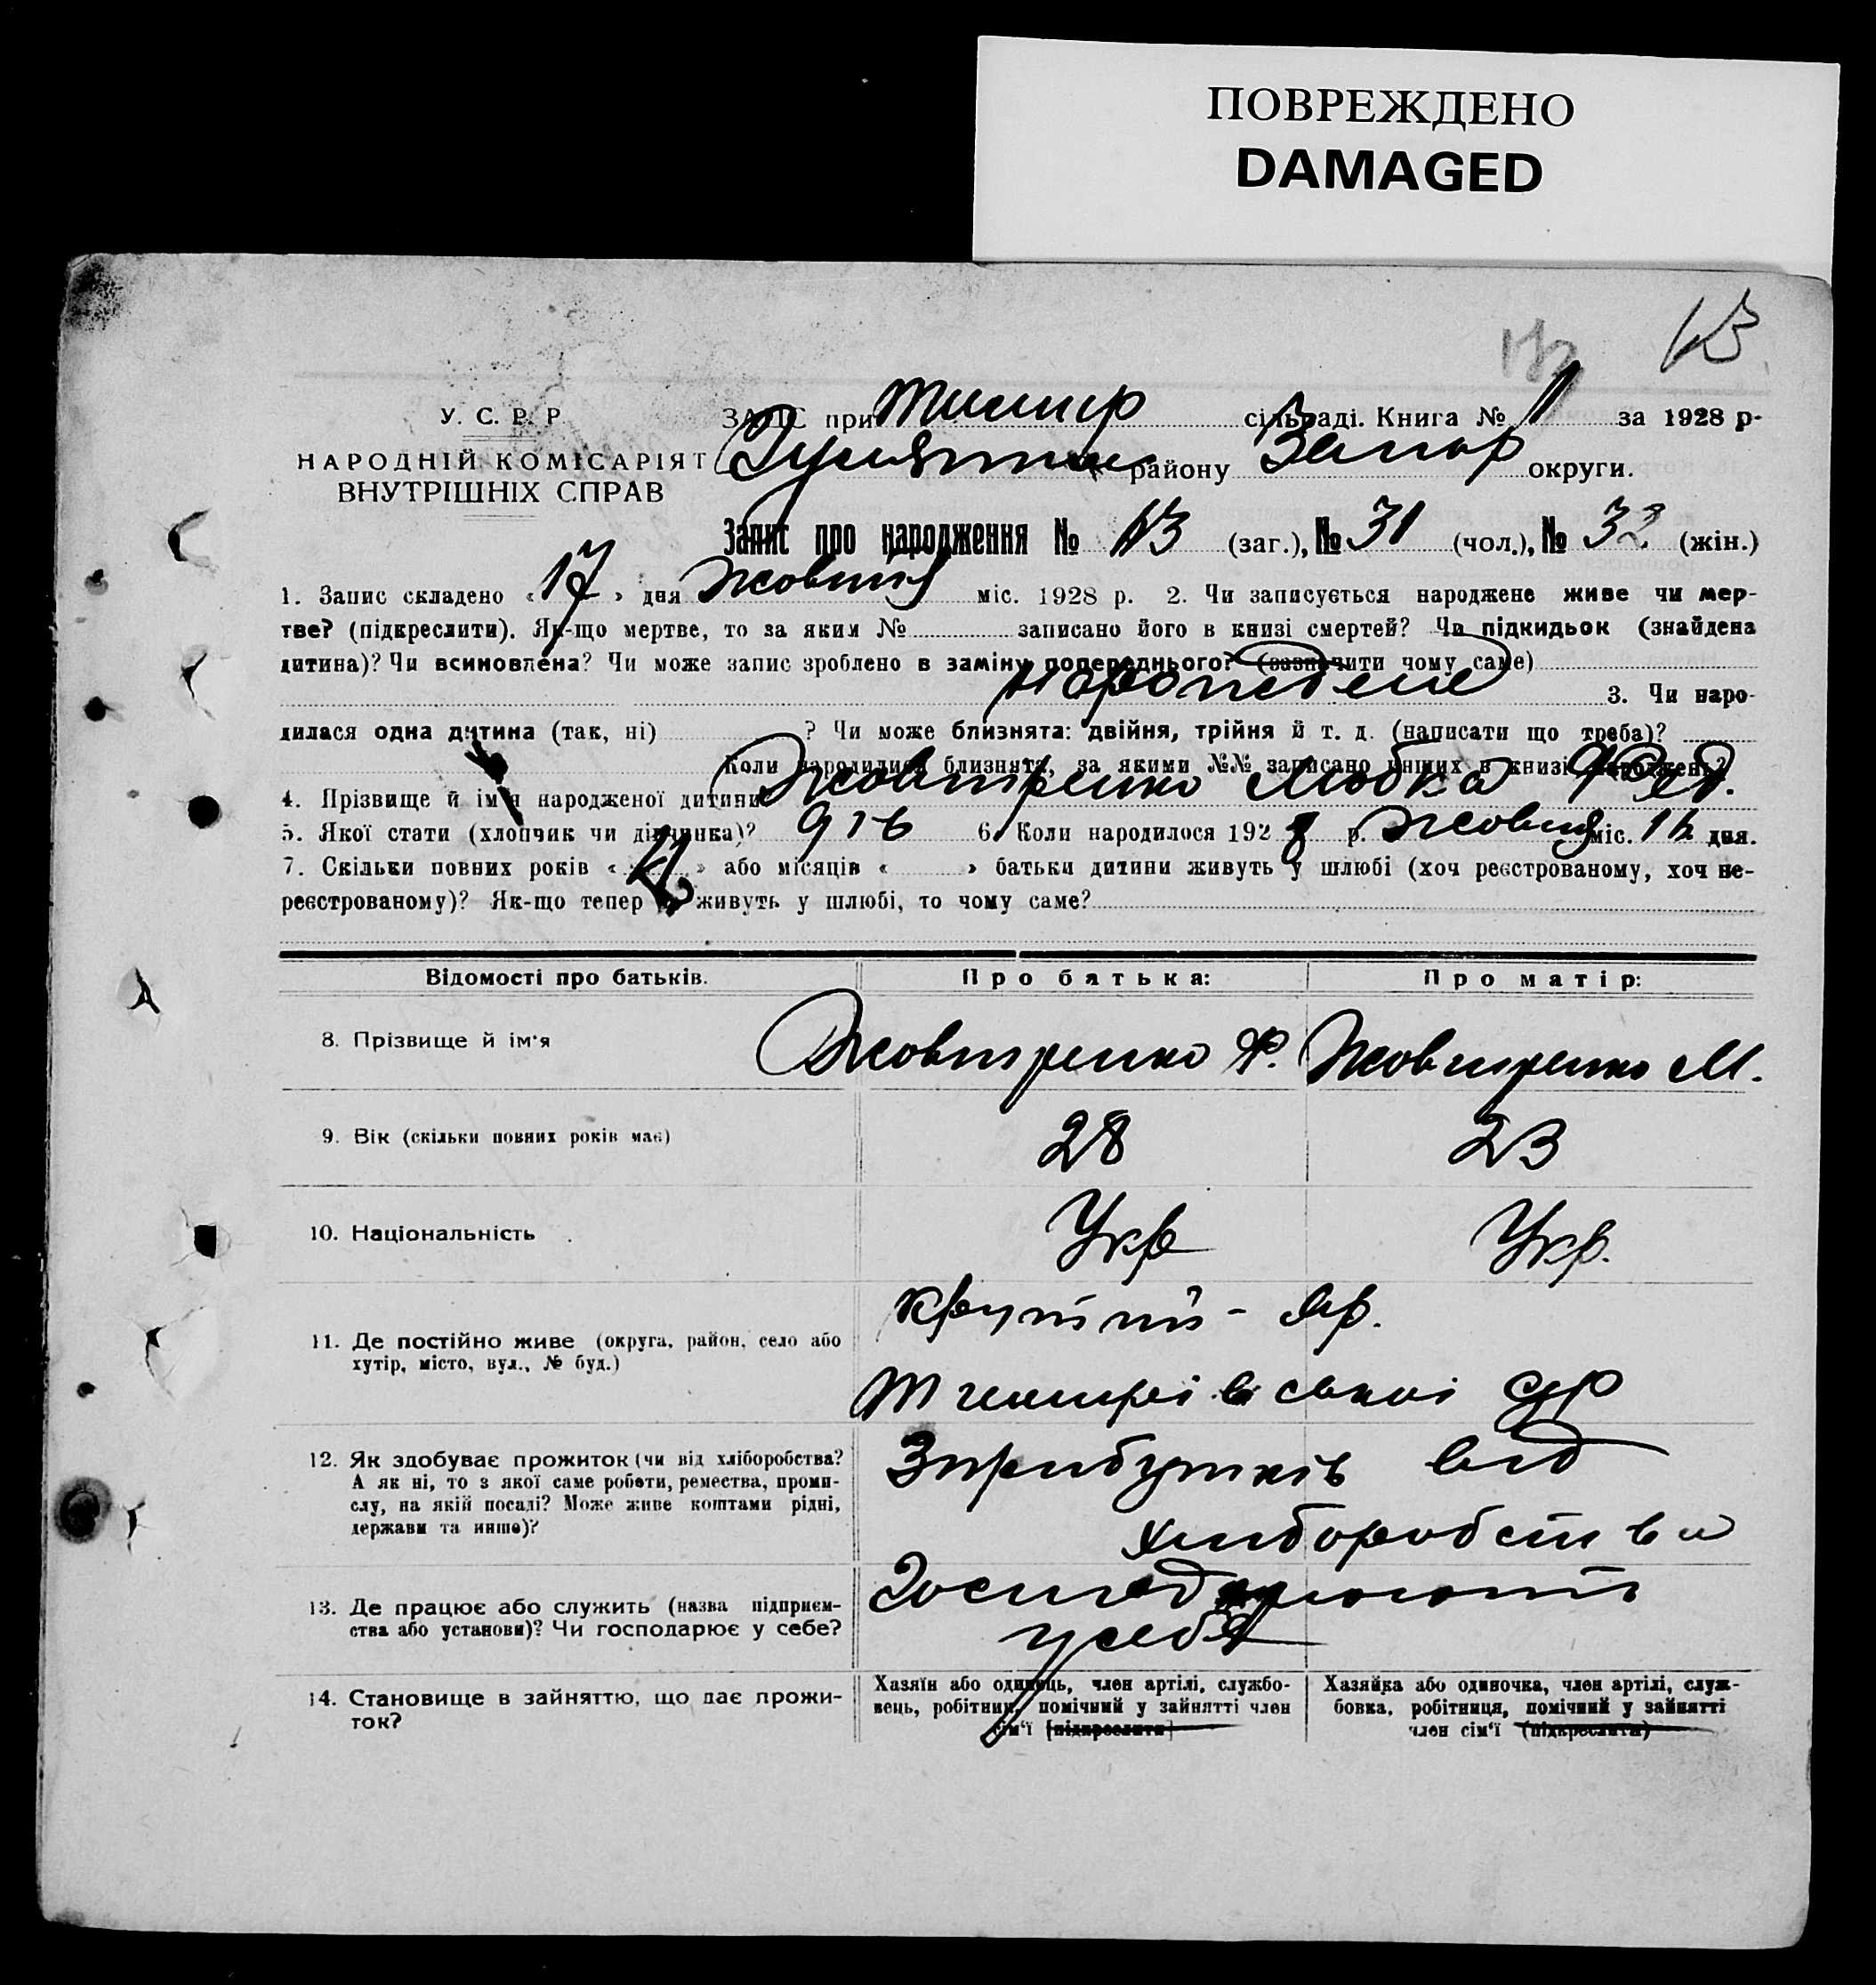 ПОВРЕЖДЕНО
DAMAGED
13
У. С. Р. Р.
НАРОДНІЙ КОМІСАРІЯТ
ВНУТРІШНІХ СПРАВ
ЗАПИС при сільраді. Книга № 11 за 1928 р.
району Запор округи.
Запис про народження № (заг.), № 31 (чол.), № 32 (жін.)
1. Запис складено «17» дня Жовтня міс. 1928 р. 2. Чи записується народжене живе чи мер-
тве? (підкреслити). Як-що мертве, то за яким № записано його в книзі смертей? Чи підкидьок (знайдена
дитина)? Чи всиновлена? Чи може запис зроблено в заміну попереднього? (зазначити чому саме)
народжене 3. Чи наро-
дилася одна дитина (так, ні) ? Чи може близнята: двійня, трійня й т. д. (написати що треба)?
Коли народилися близнята, за якими №№ записано інших в книзі народжень?
4. Прізвище й ім'я народженої дитини? Жовтиренко Любка Фед.
5. Якої стати (хлопчик чи дівчинка)? 6. Коли народилося 1928 р. Жовтня міс. дня.
7. Скільки повних років « » або місяців « » батьки дитини живуть у шлюбі (хоч реєстрованому, хоч не-
реєстрованому)? Як-що тепер не живуть у шлюбі, то чому саме?
Відомості про батьків. Про батька: Про матір:
8. Прізвище й ім'я Жовтиренко Ф. Жовтиренко М.
9. Вік (скільки повних років має) 28 23
10. Національність Укр Укр.
11. Де постійно живе (округа, район, село або
хутір, місто, вул., № буд.)
Крутий - Яр.
12. Як здобуває прожиток (чи від хліборобства?
А як ні, то з якої саме роботи, ремества, проми-
слу, на якій посаді? Може живе коштами рідні,
держави та инше)?
Зприбутків від
хліборобства
13. Де працює або служить (назва підприєм-
ства або установи)? Чи господарює у себе?
Господарюють
у себе
14. Становище в зайняттю, що дає прожи-
ток?
Хазяїн або одинець, член артілі, службо-
вець, робітник, помічний у зайнятті член
сім'ї (підкреслити)
Хазяйка або одиночка, член артілі, служ-
бовка, робітниця, помічний у зайнятті
член сім'ї (підкреслити)